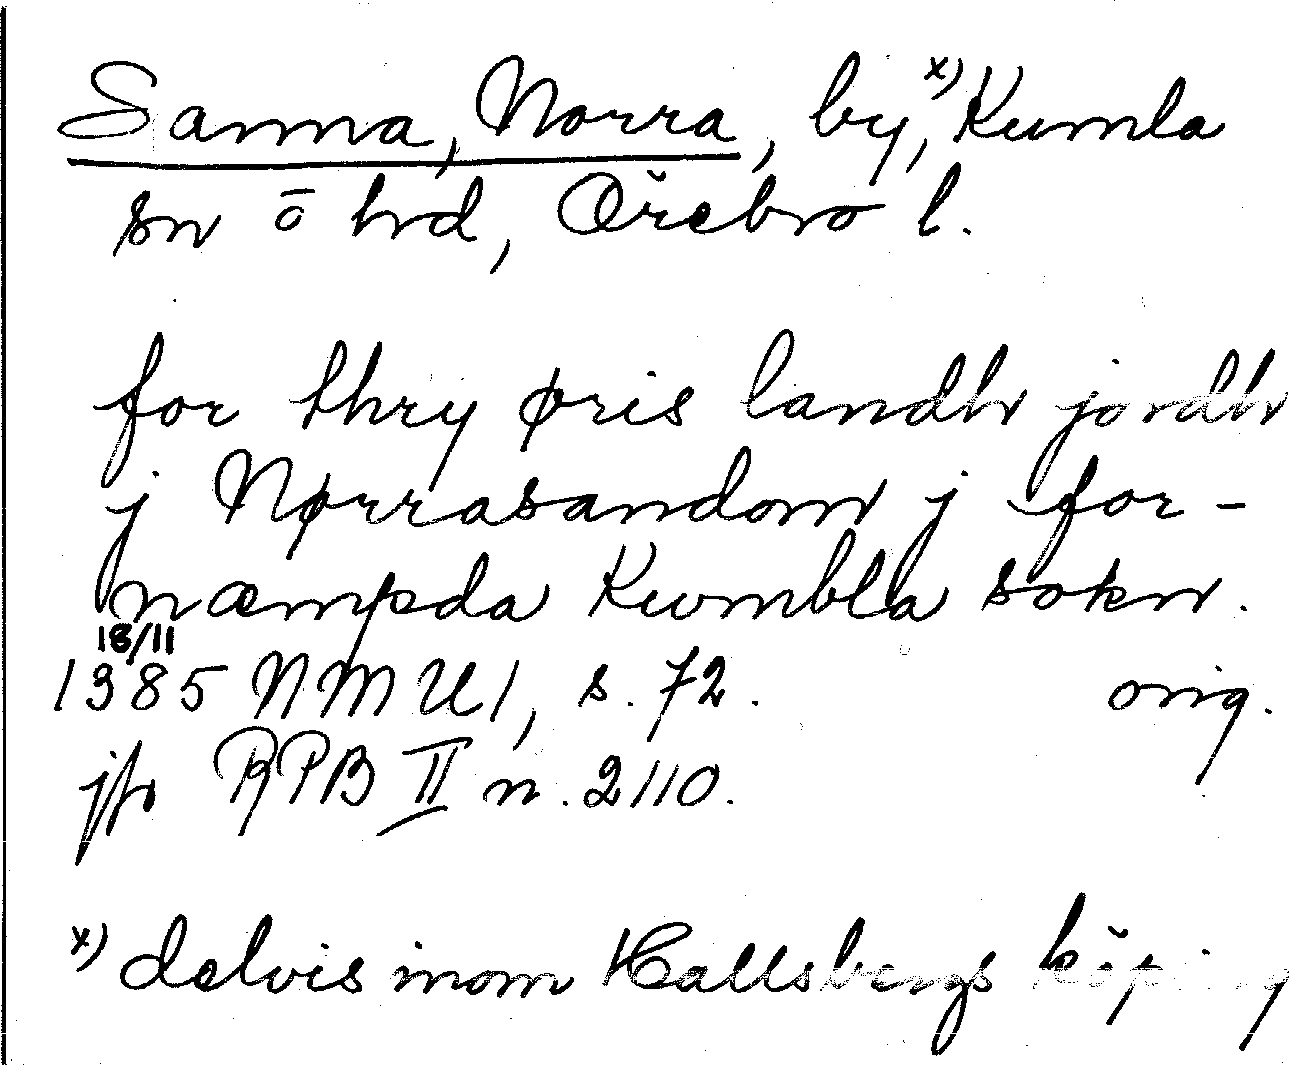 Sanna, Norra, by,x) Kumla
sn o hrd, Örebro l.
for thry øris landh jordh
j Nørrasandom j for-
næmpda Kumbla sokn.
18/11
1385 NMU1, s. 72. orig.
jfr RPB II n. 2110.
x) delvis inom Hallsbergs köping